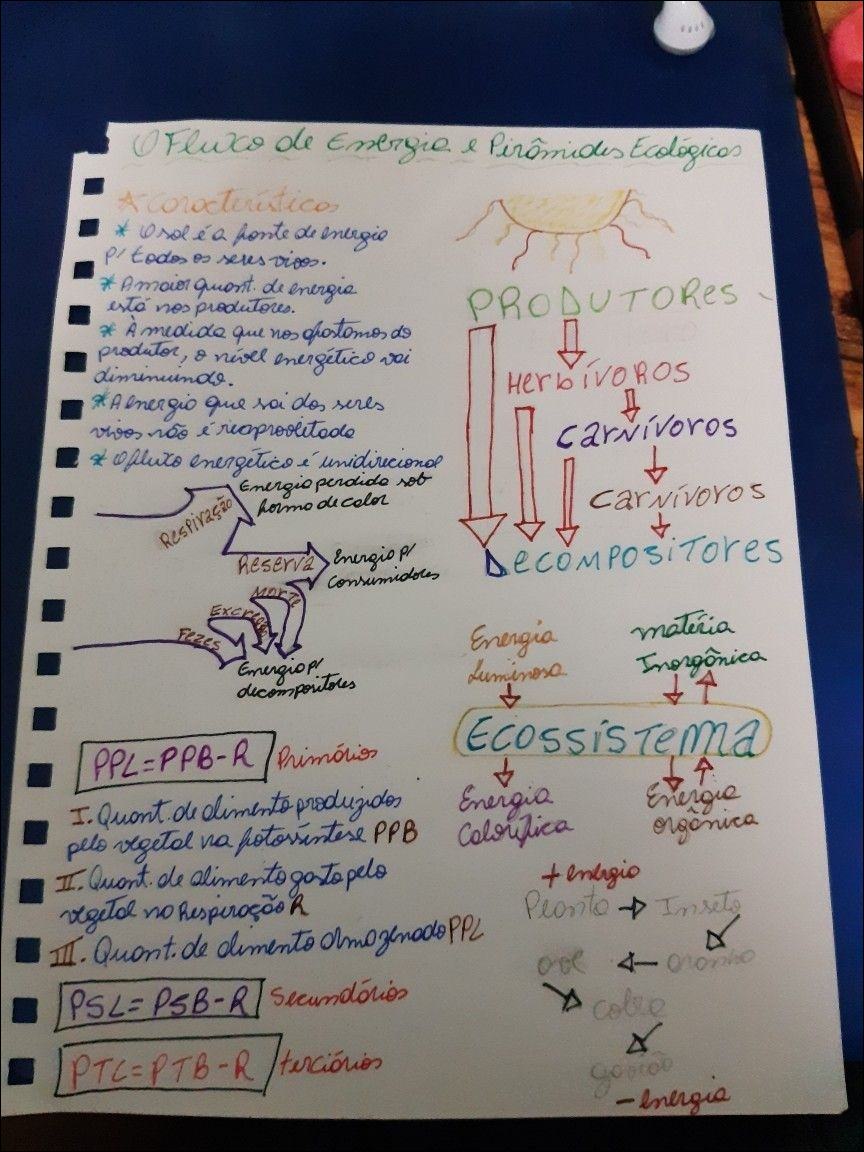 O Fluxo de Energia e Pirâmides Ecológicas
Característicos
* O sol é a fonte de energia
p/ todos os seres vivos.
* A maior quant. de energia
está nos produtores.
* À medida que nos afastamos do
produtor, o nível energético vai
diminuindo.
* A energia que sai dos seres
vivos não é reaproveitada
* O fluxo energético é unidirecional
Respiração
Energia perdida sob
forma de calor
Reserva
Energia p/
Consumidores
Fezes
Excreção
Morte
Energia p/
decompositores
PPL=PPB-R Primários
I. Quant. de alimento produzidos
pelo vegetal na fotossíntese PPB
II. Quant. de alimento gasto pelo
vegetal na Respiração R
III. Quant. de alimento armazenado PPL
PSL=PSB-R Secundários
PTL=PTB-R terciários
PRODUTORes
HerbívoRos
Carnívoros
Carnívoros
Decompositores
Energia
Luminosa
matéria
Inorgânica
Ecossistema
Energia
Calorífica
Energia
orgânica
+ energia
Planta → Inseto
ave ← aranha
cobra
gavião
- energia